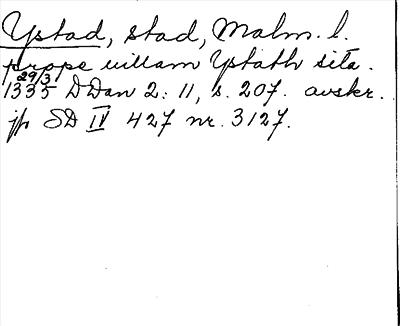 Ystad, stad, Malm. l.
prope uillam Ystath sita.
1335 29/3 DDan 2: 11, s. 207. avskr.
jfr SD IV 427 nr. 3127.